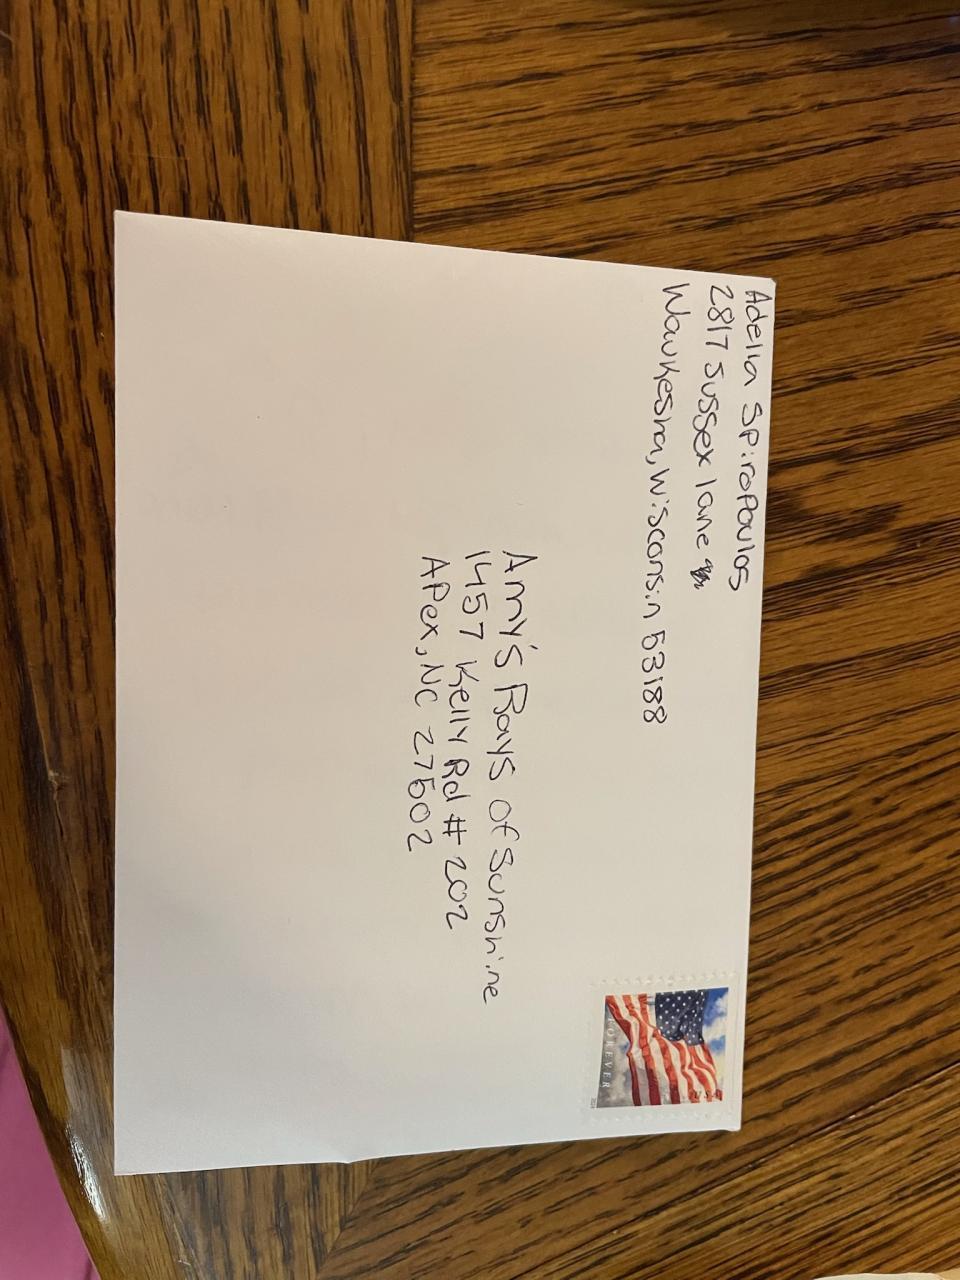 Adella Spiropoulos
2817 Sussex lane
Waukesha, Wisconsin 53188
USA
FOREVER
Amy's Rays of Sunshine
1457 Kelly Rd # 202
Apex, NC 27502